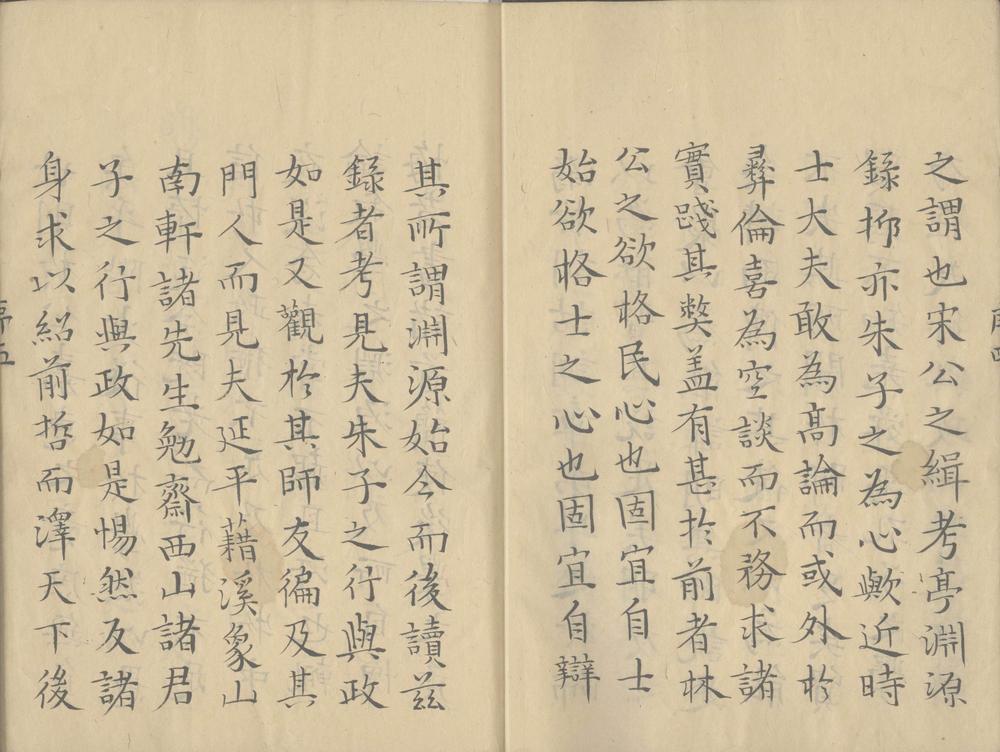 之謂也宋公之緝考亭淵源
錄抑亦朱子之為心歟近時
士大夫敢為高論而或外於
彛倫喜為空談而不務求諸
實踐其獘盖有甚於前者林
公之欲格民心也固宜自士
始欲格士之心也固宜自辯
其所謂淵源始今而後讀茲
錄者考見夫朱子之行與政
如是又觀於其師友徧及其
門人而見夫延平藉溪象山
南軒諸先生勉齋西山諸君
子之行與政如是惕然反諸
身求以紹前哲而澤天下後
序五